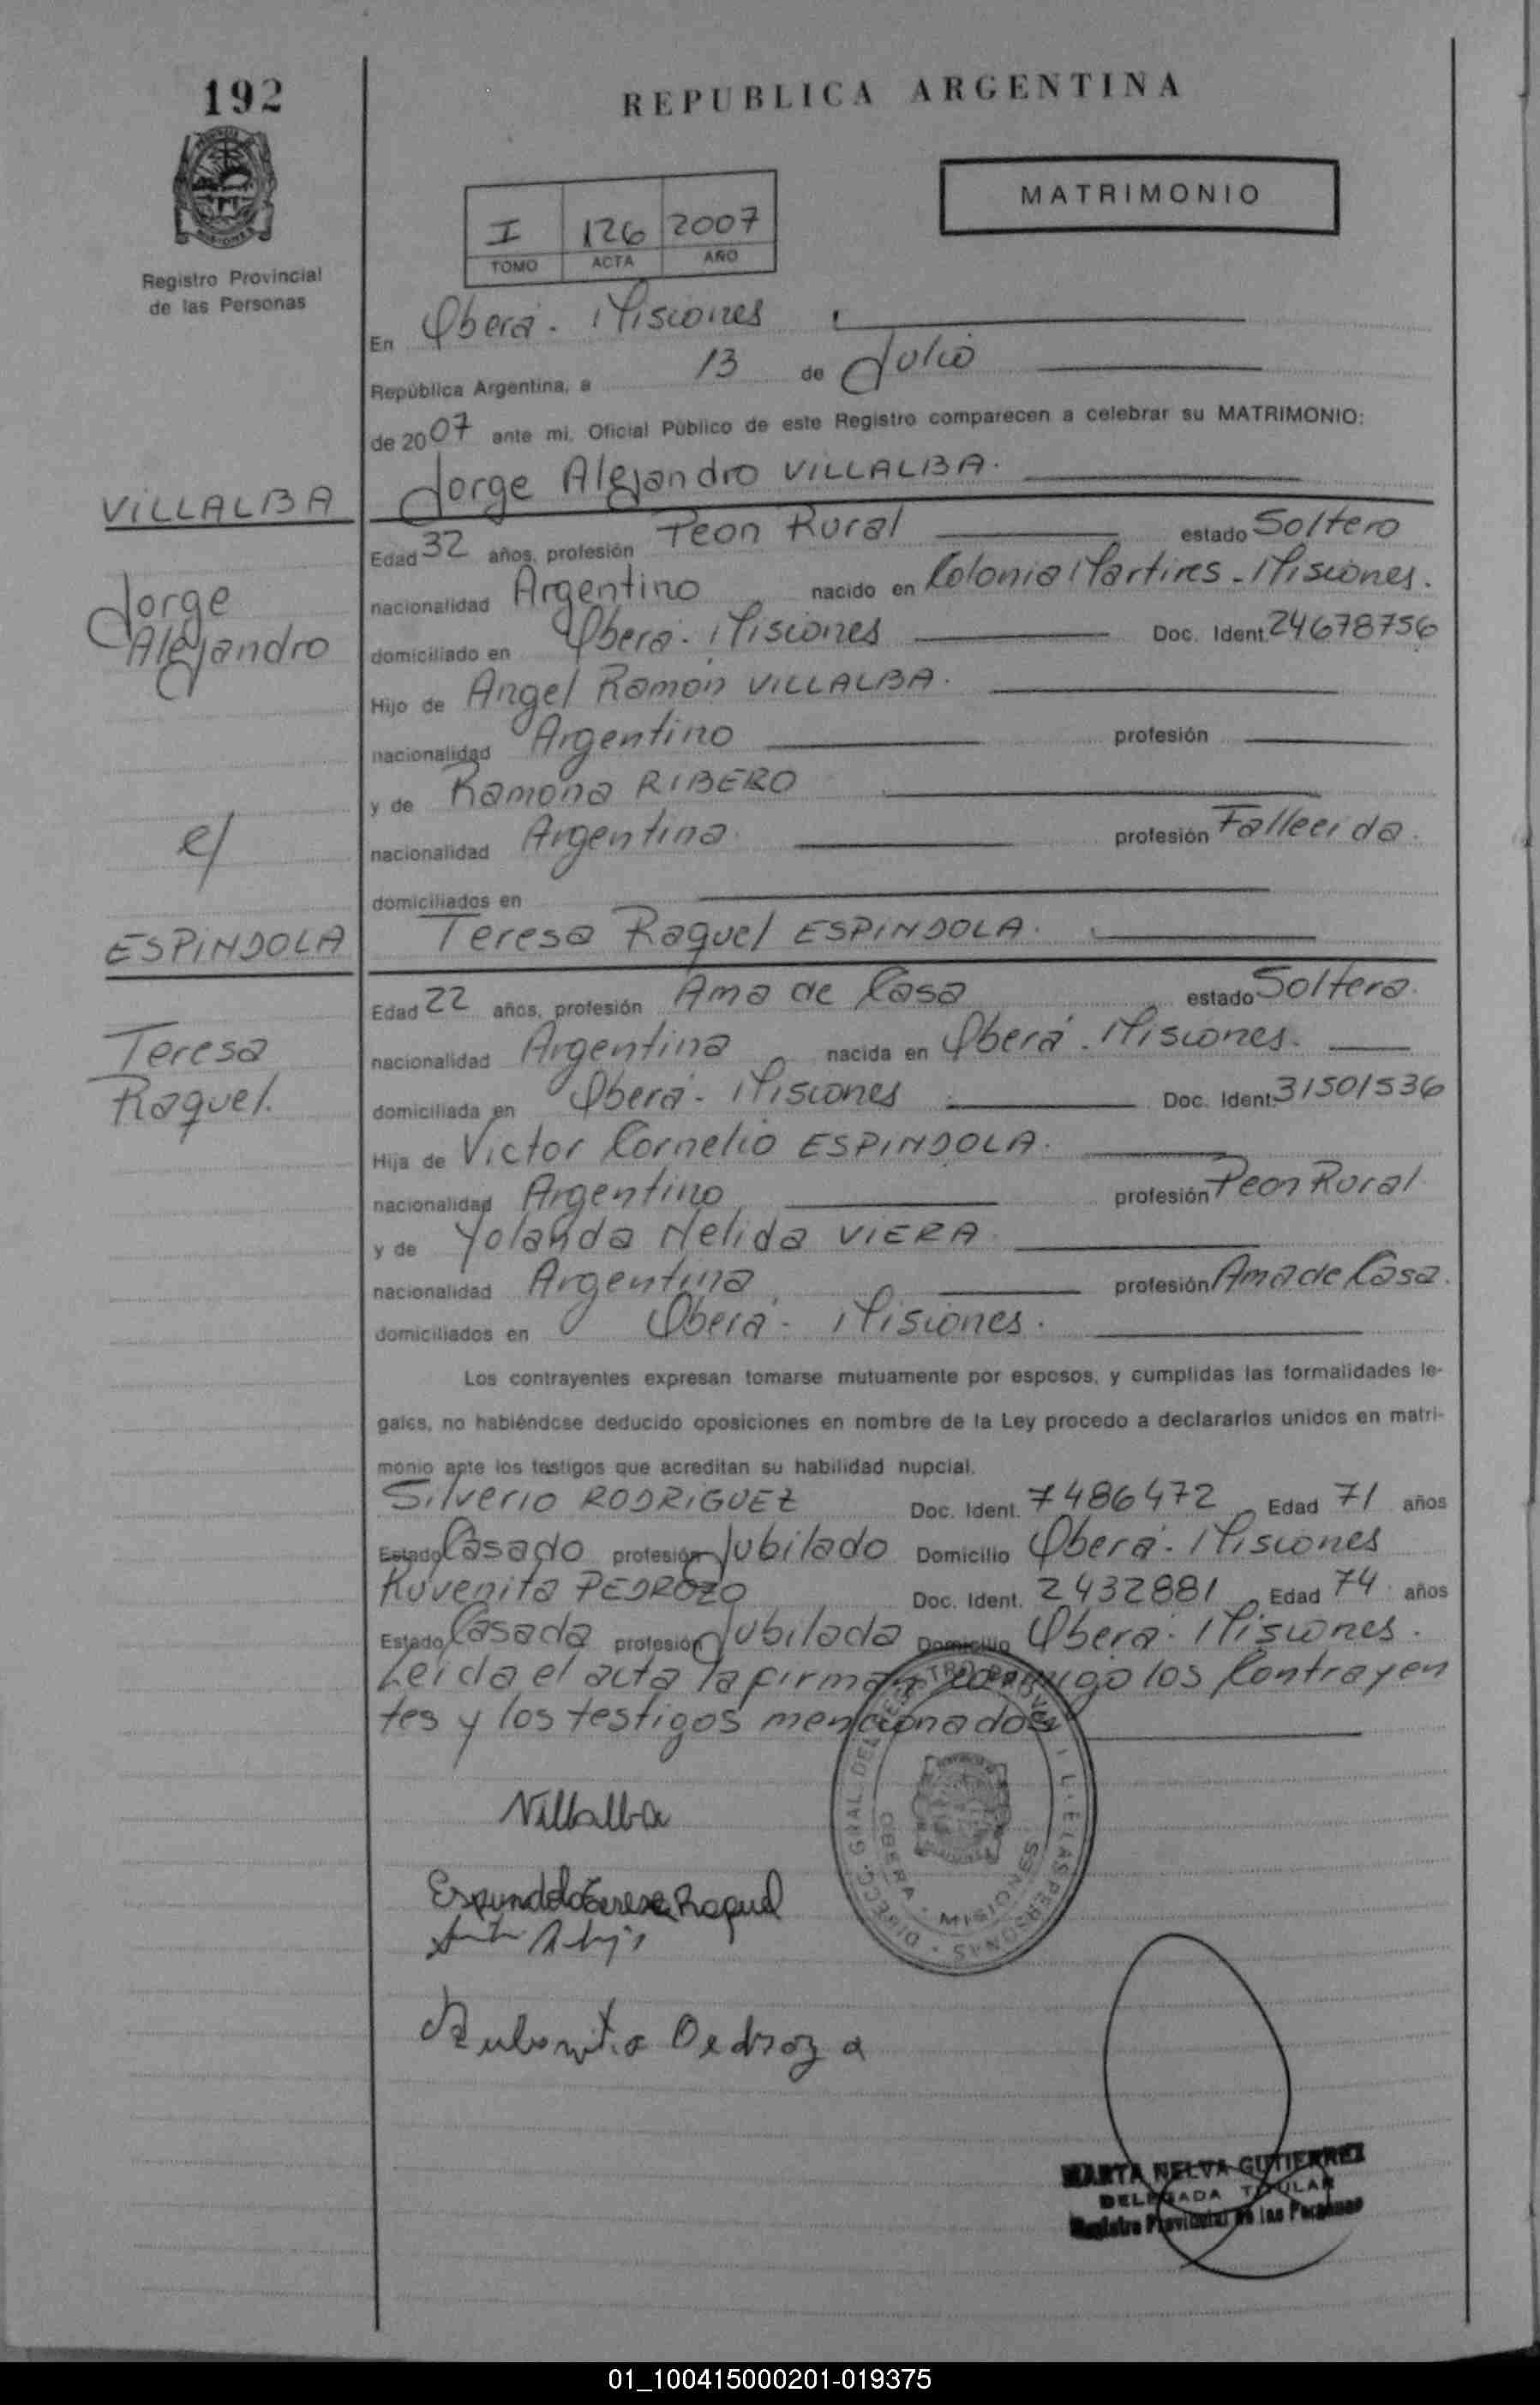 192
REPUBLICA ARGENTINA
MATRIMONIO
I 126 2007
TOMO ACTA AÑO
Registro Provincial
de las Personas
En Oberá - Misiones
República Argentina, a 13 de Julio
de 2007 ante mi, Oficial Público de este Registro comparecen a celebrar su MATRIMONIO:
VILLALBA
Jorge Alejandro VILLALBA.
Edad 32 años, profesión Peon Rural estado Soltero
Jorge
Alejandro
nacionalidad Argentino nacido en Colonia Martires - Misiones.
domiciliado en Oberá - Misiones Doc. Ident. 24678756
Hijo de Angel Ramón VILLALBA.
nacionalidad Argentino profesión
y de Ramona RIBERO
c/
nacionalidad Argentina profesión Fallecida.
domiciliados en
ESPINDOLA
Teresa Raquel ESPINDOLA.
Edad 22 años, profesión Ama de Casa estado Soltera.
Teresa
Raquel.
nacionalidad Argentina nacida en Oberá - Misiones.
domiciliada en Oberá - Misiones Doc. Ident. 31501536
Hija de Victor Cornelio ESPINDOLA.
nacionalidad Argentino profesión Peon Rural
y de Yolanda Nelida VIERA
nacionalidad Argentina profesión Ama de Casa.
domiciliados en Oberá - Misiones.
Los contrayentes expresan tomarse mutuamente por esposos, y cumplidas las formalidades le-
gales, no habiéndose deducido oposiciones en nombre de la Ley procedo a declararlos unidos en matri-
monio ante los testigos que acreditan su habilidad nupcial.
Silverio RODRIGUEZ Doc. Ident. 7486472 Edad 71 años
Estado Casado profesión Jubilado Domicilio Oberá - Misiones
Ruvenita PEDROZO Doc. Ident. 2432881 Edad 74 años
Estado Casada profesión Jubilada Domicilio Oberá - Misiones.
Leída el acta la firman conmigo los Contrayen
tes y los testigos mencionados
DIRECC. GRAL. DEL REGISTRO PROVINCIAL DE LAS PERSONAS
OBERA - MISIONES
Villalba
Espindola Teresa Raquel
Rubenita Pedroza
MARTA NELVA GUTIERREZ
DELEGADA TITULAR
Registro Provincial de las Personas
01_100415000201-019375